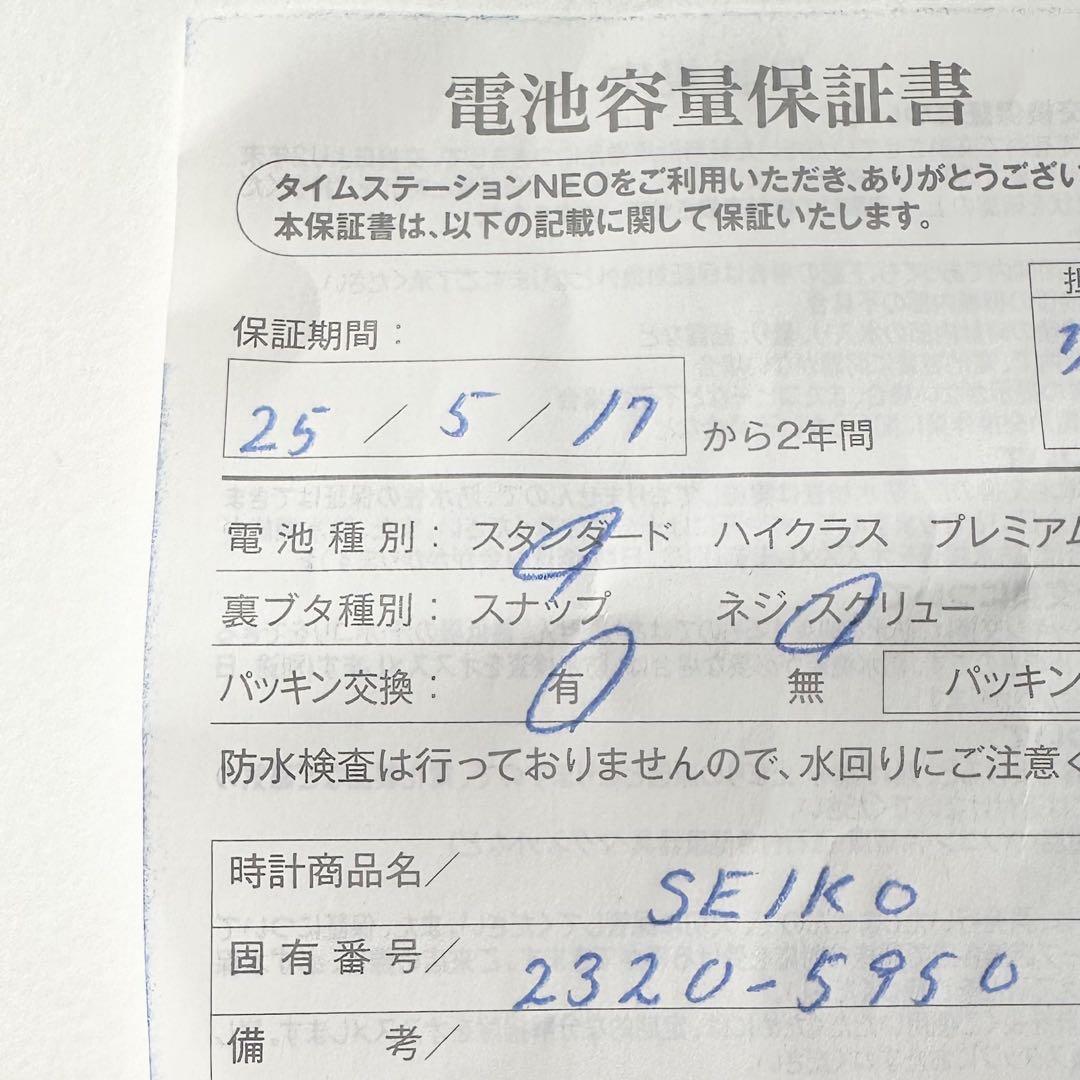 電池容量保証書
タイムステーションNEOをご利用いただき、ありがとうござい
本保証書は、以下の記載に関して保証いたします。
担
保証期間:
25 / 5 / 17 から2年間
電池種別: スタンダード ハイクラス プレミアム
裏ブタ種別: スナップ ネジ・スクリュー
パッキン交換: 有 無 パッキン
防水検査は行っておりませんので、水回りにご注意く
時計商品名/ SEIKO
固有番号/ 2320-5950
備考/